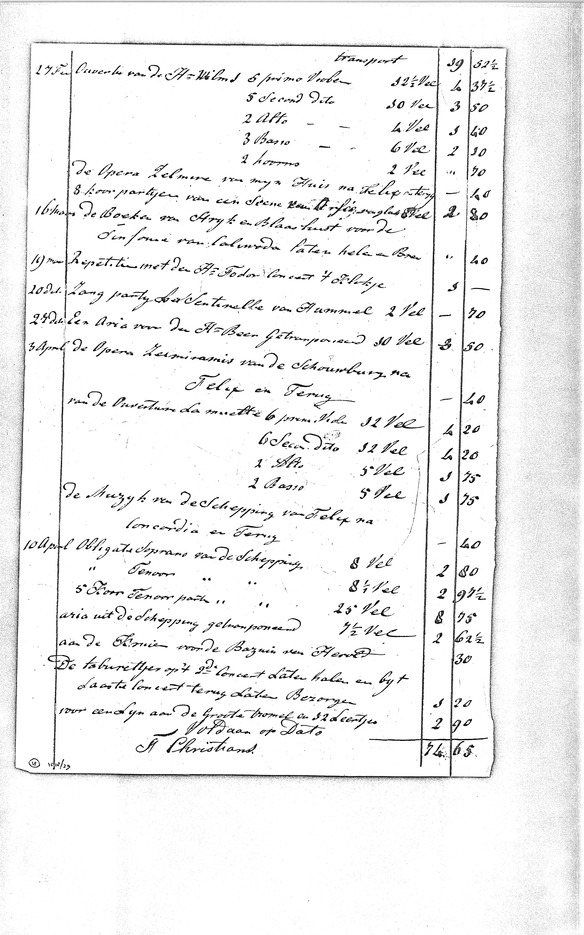 transport 39 52½
27 Feb Ouverture van de Hr Wilms 6 primo Violen 12½ Vel 4 37½
5 Second dito 10 Vel 3 50
2 Alto — — 4 Vel 1 40
3 Basso — — 6 Vel 2 10
2 hoorns 2 Vel " 70
de Opera Zelmire van myn Huis na Felix en terug — 40
8 koor partyen van een Scene 8 Vel 2 80
16 maart de Boeken van Stryk en Blaas lust voor de
Sinfonie van Caliwoda laten hele en Bren " 40
19 mrt Repetitie met den Hr Fodor Concert 4 Klokje 1 —
20 dito Zang party der Sentinelle van Hummel 2 Vel — 70
24 dito Een Aria voor den Hr Beer Getransponeerd 10 Vel 3 50
3 April de Opera Zemiramis van de Schouwburg na
Felix en Terug — 40
van de Ouverture La muette 6 prim. Viole 12 Vel 4 20
6 Secon dito 12 Vel 4 20
2 Alto 5 Vel 1 75
2 Basso 5 Vel 1 75
de Muzyk van de Schepping van Felix na
Concordia en Terug — 40
10 April Obligate Soprano van de Schepping 8 Vel 2 80
" Tenoor " " 8½ Vel 2 97½
5 Koor Tenoor party " " 25 Vel 8 75
aria uit de Schepping getransponeerd 7½ Vel 2 62½
aan de Kruier voor de Bazuin van Herod 30
De taburettjes op 't 9de Concert Laten halen en by 't
Laaste Concert terug Laten Bezorgen 1 20
voor een Lyn aan de Groote tromel en 12 Leertjes 2 90
Voldaan op Dato
Christiani 74 65